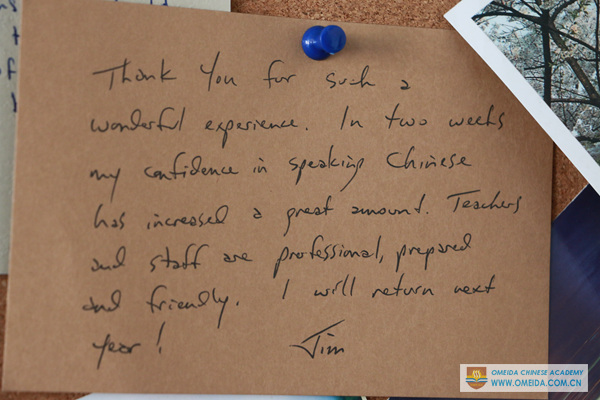 Thank You for such a
wonderful experience. In two weeks
my confidence in speaking Chinese
has increased a great amount. Teachers
and staff are professional, prepared
and friendly. I will return next
year!
Jim
OMEIDA CHINESE ACADEMY
WWW.OMEIDA.COM.CN